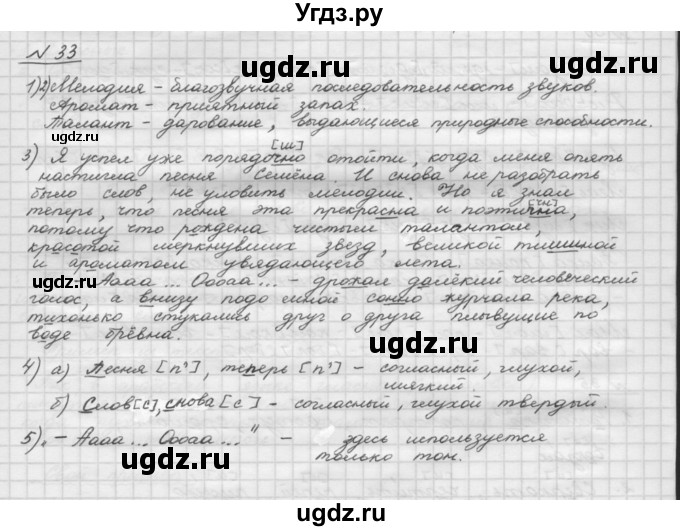 Угдз.ру
№ 33
1)2) Мелодия – благозвучная последовательность звуков.
Аромат – приятный запах.
Талант – дарование, выдающиеся природные способности.
[ш]
3) Я успел уже порядочно отойти, когда меня опять
настигла песня Семёна. И снова не разобрать
было слов, не уловить мелодии. Но я знал
[чн]
теперь, что песня эта прекрасна и поэтична,
потому что рождена чистым талантом,
красотой меркнувших звезд, великой тишиной
и ароматом увядающего лета.
Аааа... Ооааа... – дрожал далёкий человеческий
голос, а внизу подо мной сонно журчала река,
тихонько стукались друг о друга плывущие по
воде брёвна.
4) а) Песня [п'], теперь [п'] – согласный, глухой,
мягкий.
б) Слов [с], снова [с] – согласный, глухой твердый.
5). – Аааа... Ооааа..." – здесь используется
только тон.
ugdz.ru
ugdz.ru
ugdz.ru
ugdz.ru
ugdz.ru
ugdz.ru
ugdz.ru
ugdz.ru
ugdz.ru
ugdz.ru
ugdz.ru
ugdz.ru
ugdz.ru
ugdz.ru